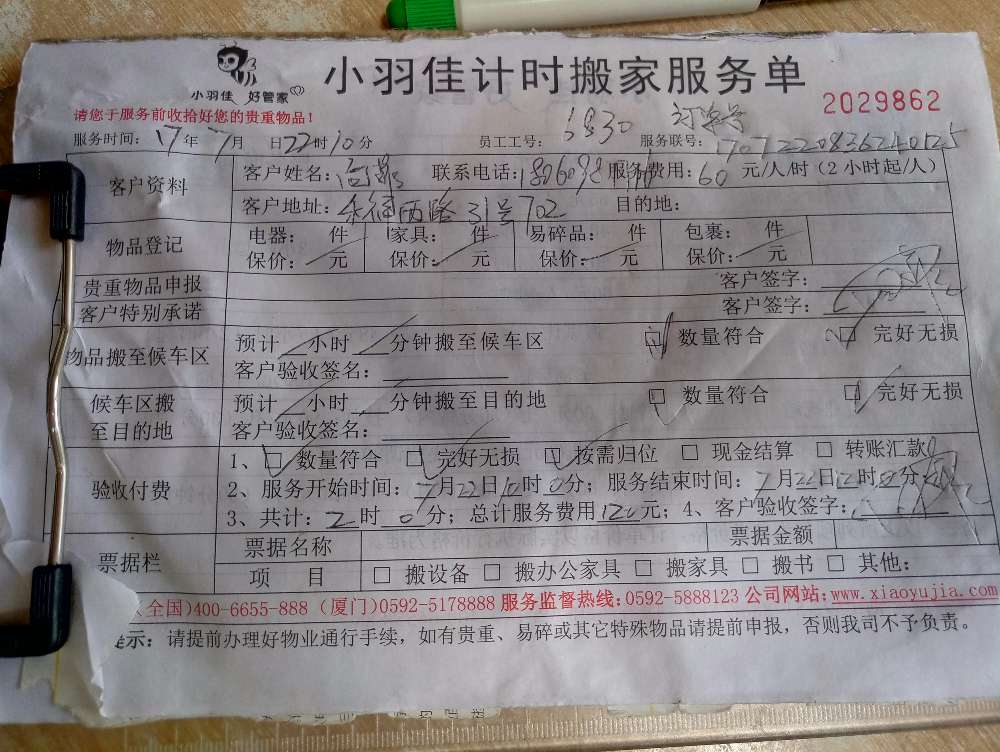 小羽佳计时搬家服务单
小羽佳 好管家
2029862
请您于服务前收拾好您的贵重物品！
服务时间：17年7月 日22时10分 员工工号：6830 服务联号：
客户资料 客户姓名： 联系电话： 服务费用：60元/人/时（2小时起/人）
客户地址： 西路31号702 目的地：
物品登记 电器： 件 家具： 件 易碎品： 件 包裹： 件
保价： 元 保价： 元 保价： 元 保价： 元
贵重物品申报 客户签字：
客户特别承诺 客户签字：
物品搬至候车区 预计 小时 分钟搬至候车区 □ 数量符合 □ 完好无损
客户验收签名：
候车区搬至目的地 预计 小时 分钟搬至目的地 □ 数量符合 □ 完好无损
客户验收签名：
验收付费 1、□ 数量符合 □ 完好无损 □ 按需归位 □ 现金结算 □ 转账汇款
2、服务开始时间：7月22日10时0分；服务结束时间：7月22日12时0分
3、共计：2时0分；总计服务费用120元；4、客户验收签字：
票据栏 票据名称 票据金额
项 目 □ 搬设备 □ 搬办公家具 □ 搬家具 □ 搬书 □ 其他：
（全国)400-6655-888（厦门)0592-5178888 服务监督热线：0592-5888123 公司网站：www.xiaoyujia.com
示：请提前办理好物业通行手续，如有贵重、易碎或其它特殊物品请提前申报，否则我司不予负责。